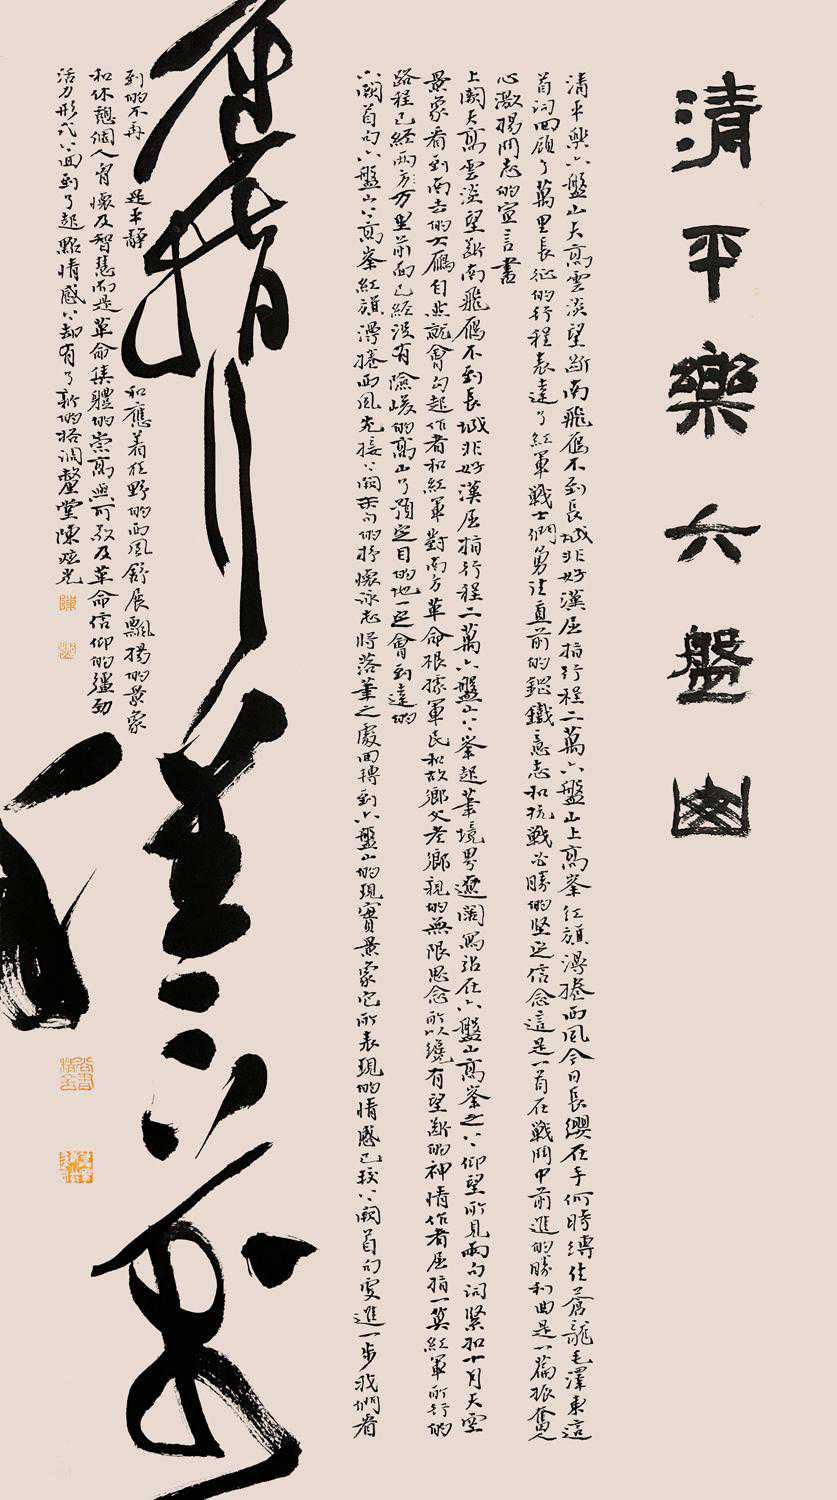 清平樂六盤山
清平樂六盤山天高雲淡望斷南飛雁不到長城非好漢屈指行程二萬六盤山上高峯紅旗漫捲西風今日長纓在手何時縛住蒼龍毛澤東這
首詞回顧了萬里長征的行程表達了紅軍戰士們勇往直前的鋼鐵意志和抗戰必勝的堅定信念這是一首在戰鬥中前進的勝利曲是一篇振奮人
心激揚鬥志的宣言書
上闋天高雲淡望斷南飛雁不到長城非好漢屈指行程二萬六盤山上峯起筆境界遼闊寫站在六盤山高峯之上仰望所見兩句詞緊扣十月天空
景象看到南去的大雁自然就會勾起作者和紅軍對南方革命根據軍民和故鄉父老鄉親的無限思念所以纔有望斷的神情作者屈指一算紅軍所行的
路程已經兩万里前面已經沒有險峻的高山了預定目的地一定會到達的
下闋首句六盤山上高峯紅旗漫捲西風先接上闋末句的抒懷詠志將落筆之處回轉到六盤山的現實景象它所表現的情感已較上闋首句更進一步我們看
屈指行程二萬
到的不再是平靜和應着狂野的西風舒展飄揚的景象
和休憩個人胸懷及智慧而是革命集體的崇高無可敵及革命信仰的強勁
活力形式上回到了起點情感上却有了新的格調鰲堂陳炫光